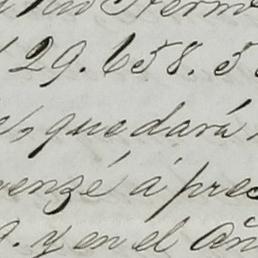 29.658.5
quedará
enzé á pres
y en el Añ